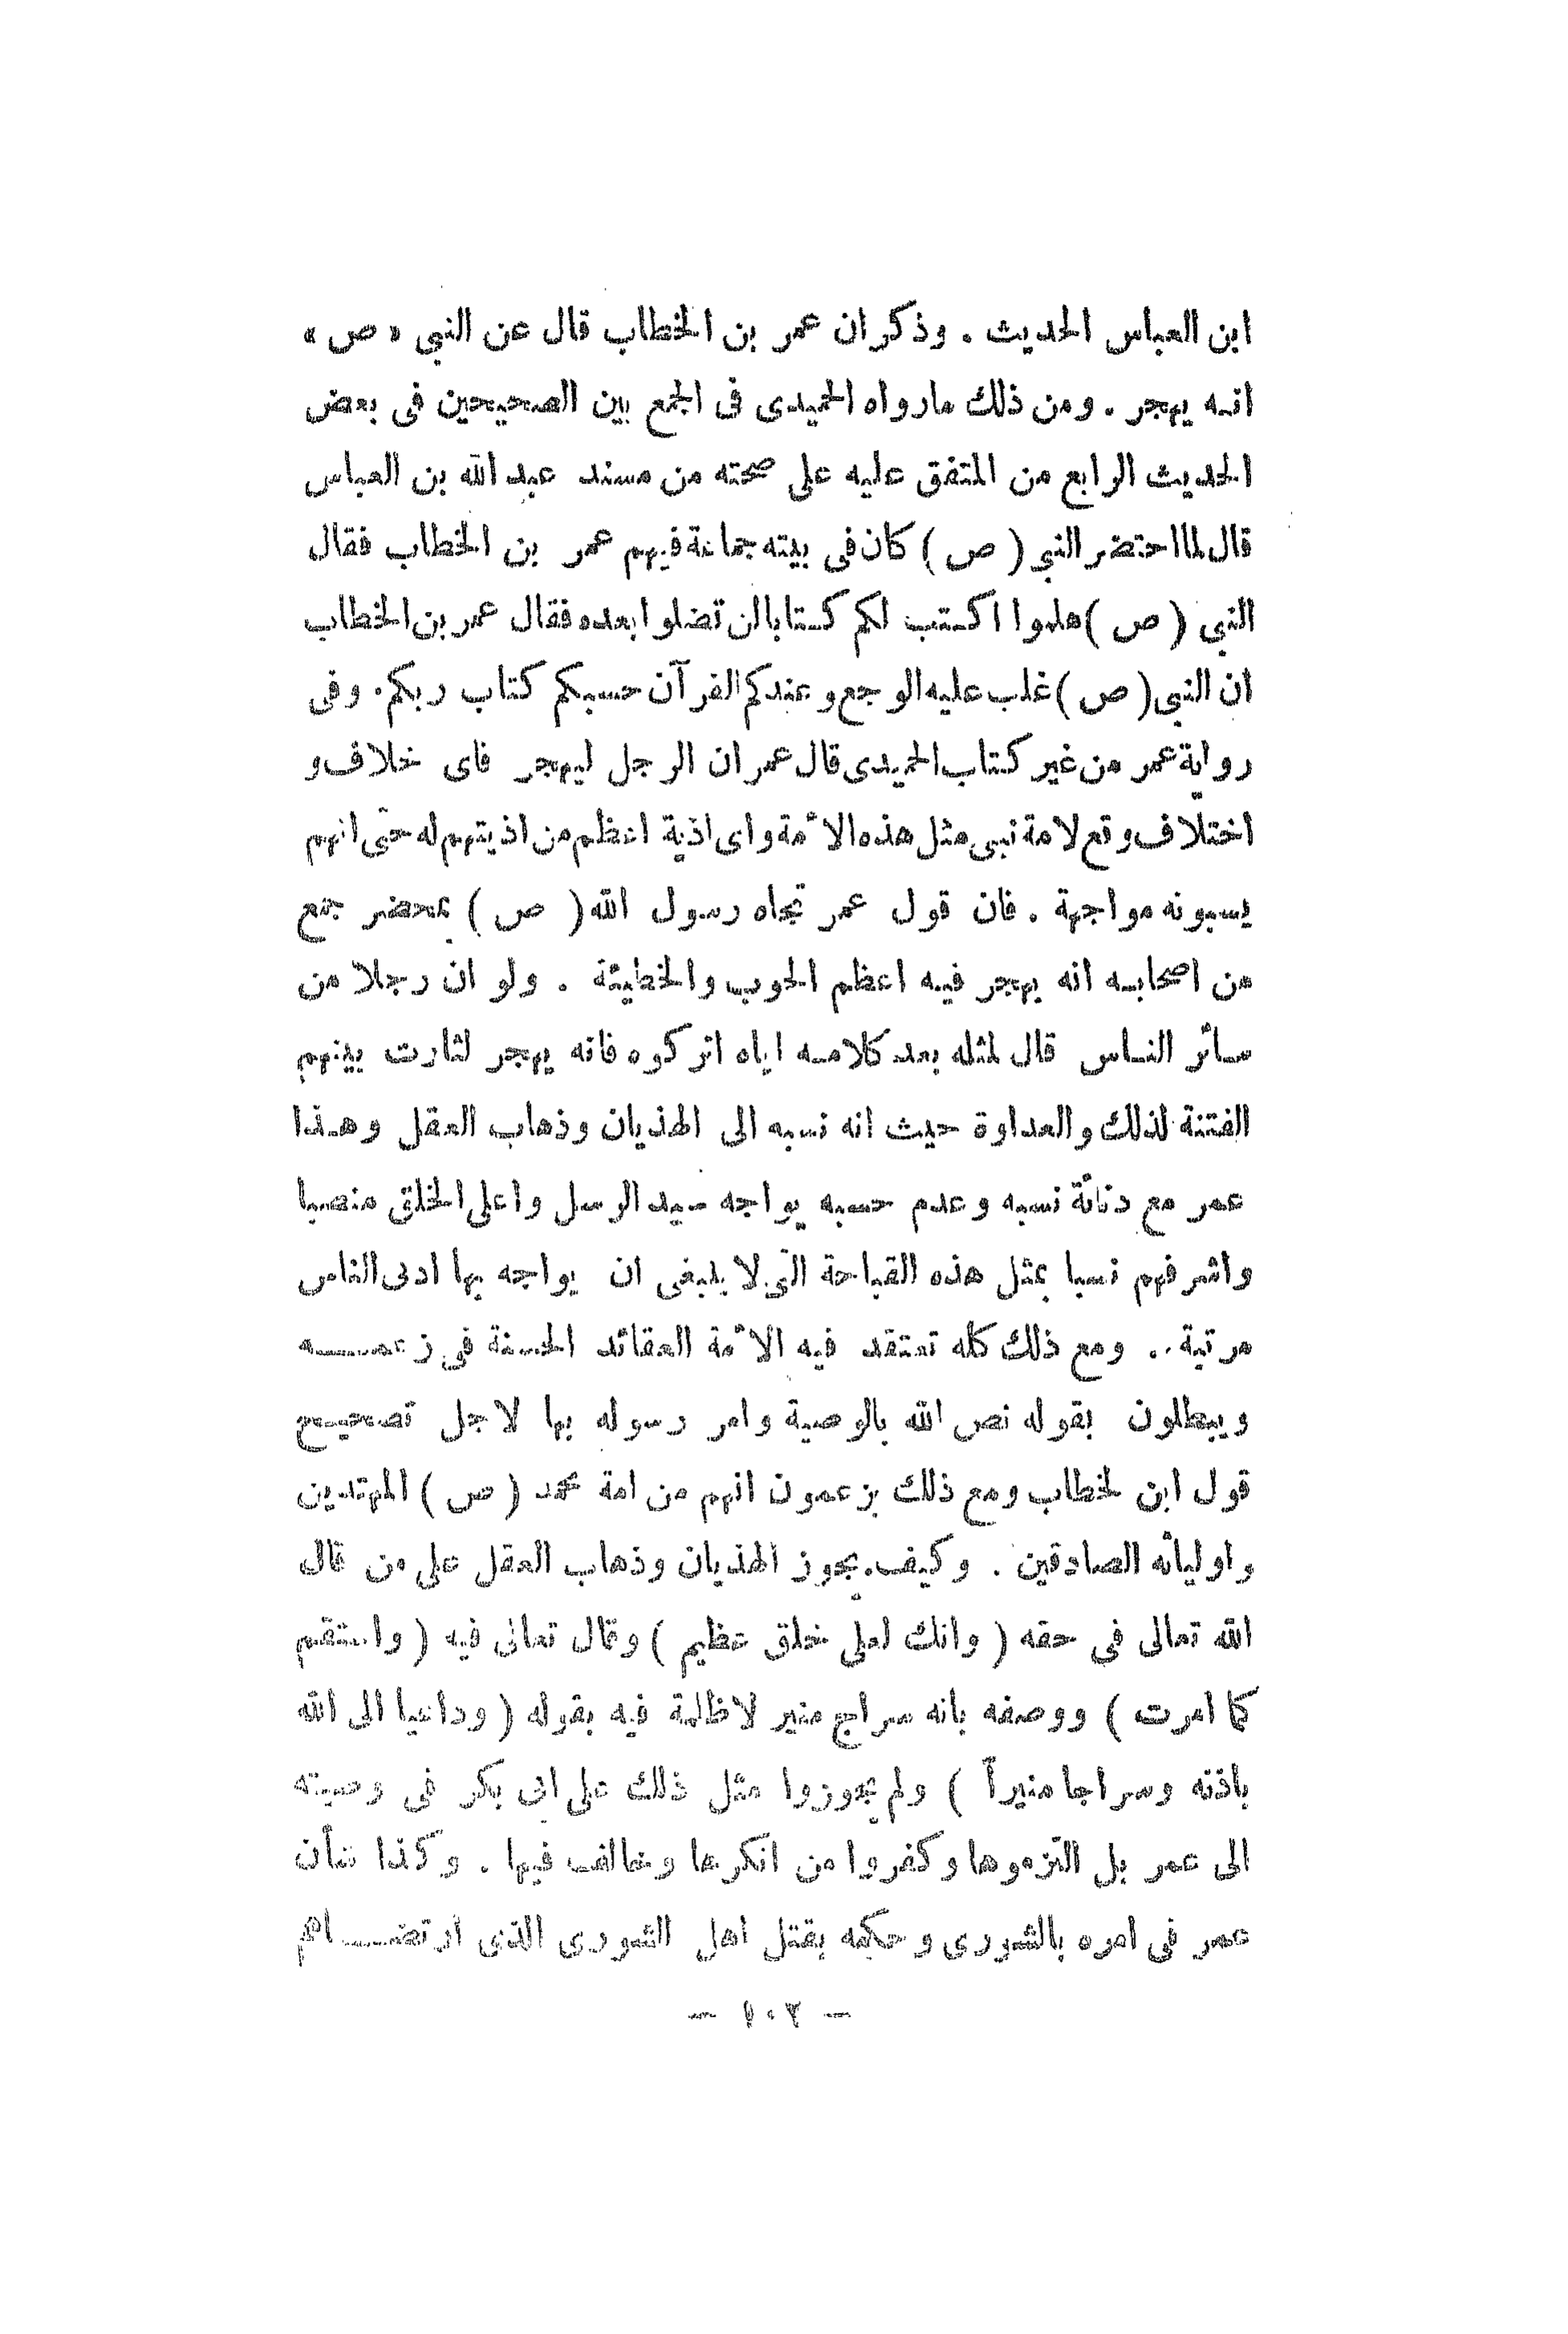 ابن العباس الحديث . وذكر ان عمر بن الخطاب قال عن النبي « ص »
انه يهجر . ومن ذلك مارواه الحميدى فى الجمع بين الصحيحين فى بعض
الحديث الرابع من المتفق عليه على صحته من مسند عبد الله بن العباس
قال لما احتضر النبي ( ص ) كان فى بيته جماعة فيهم عمر بن الخطاب فقال
النبي ( ص ) هلموا اكتب لكم كتابا لن تضلوا بعده فقال عمر بن الخطاب
ان النبي ( ص ) غلب عليه الوجع وعندكم القرآن حسبكم كتاب ربكم . وفى
رواية عمر من غير كتاب الحميدى قال عمر ان الرجل ليهجر فاى خلاف و
اختلاف وقع لامة نبى مثل هذه الأمة واى اذية اعظم من اذيتهم له حتى انهم
يسبونه مواجهة . فان قول عمر تجاه رسول الله ( ص ) بمحضر جمع
من اصحابه انه يهجر فيه اعظم الحوب والخطيئة . ولو ان رجلا من
سائر الناس قال لمثله بعد كلامه اياه اتركوه فانه يهجر لثارت بينهم
الفتنة لذلك والعداوة حيث انه نسبه الى الهذيان وذهاب العقل وهذا
عمر مع دنائة نسبه وعدم حسبه يواجه سيد الرسل واعلى الخلق منصبا
واشرفهم نسبا بمثل هذه القباحة التى لا ينبغى ان يواجه بها ادنى الناس
مرتبة .. ومع ذلك كله تعتقد فيه الأمة العقائد الحسنة فى زعمه
ويبطلون بقوله نص الله بالوصية وامر رسوله بها لاجل تصحيح
قول ابن لخطاب ومع ذلك يزعمون انهم من امة محمد ( ص ) المهتدين
واوليائه الصادقين . وكيف يجوز الهذيان وذهاب العقل على من قال
الله تعالى فى حقه ( وانك لعلى خلق عظيم ) وقال تعالى فيه ( واستقم
كما امرت ) ووصفه بانه سراج منير لا ظلمة فيه بقوله ( وداعيا الى الله
باذنه وسراجا منيراً ) ولم يجوزوا مثل ذلك على ابى بكر فى وصيته
الى عمر بل التزموها وكفروا من انكرها وخالف فيها . وكذا شأن
عمر فى امره بالشورى وحكمه بقتل اهل الشورى الذى ارتضاهم
— ١٠٢ —